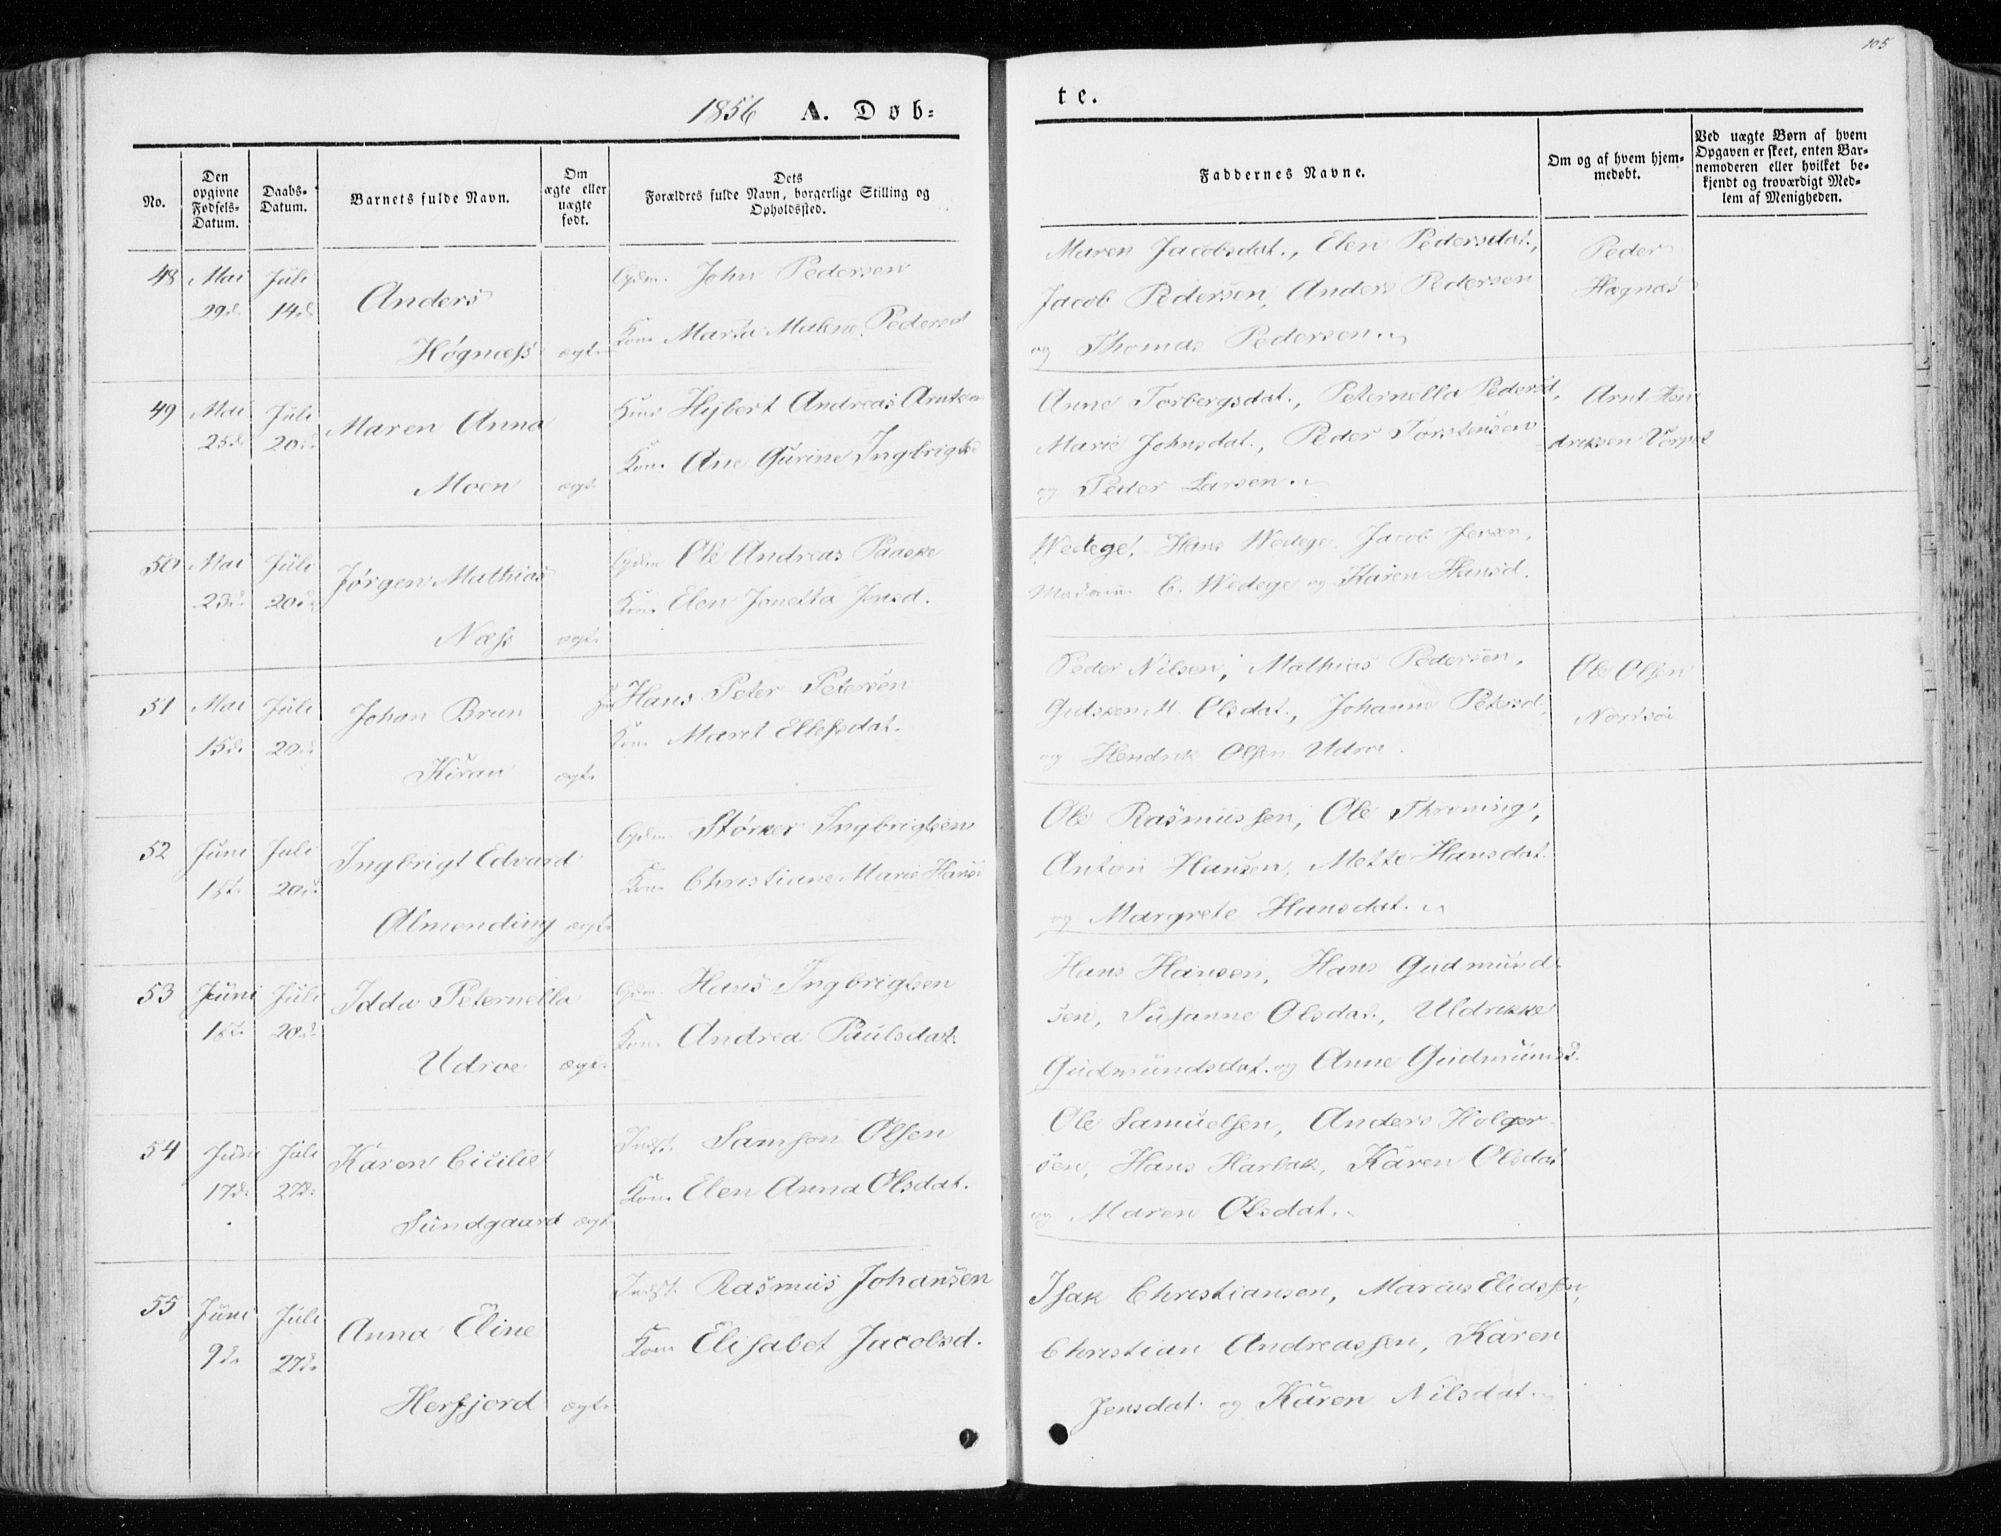 105
1856 A. Døb=
te.
No.
Den opgivne Fødsels-Datum.
Daabs-Datum.
Barnets fulde Navn.
Om ægte eller uægte født.
Dets Forældres fulde Navn, borgerlige Stilling og Opholdssted.
Faddernes Navne.
Om og af hvem hjem-medøbt.
Ved uægte Børn af hvem Opgaven er skeet, enten Bar-nemoderen eller hvilket be-kjendt og troværdigt Med-lem af Menigheden.
48 Mai 29d. Juli 14d. Anders
Høgnæss ægt.
Gdm. John Pedersen
Kone Marta Malene Pedersd
Maren Jacobsdat., Elen Pedersdat.,
Jacob Pedersen, Anders Pedersen
og Thomas Pedersen.
Peder
Høgnæs
49 Mai 25d. Juli 20d. Maren Anna
Moen ægt.
Andreas Arntsen
Kone Ane Gurine Ingbrigtsd
Anne Torbergsdat., Peternella Pedersd,
Marie Johnsdat., Peder Torstensen
og Peder Larsen.
Arnt Hen
driksen
50 Mai 23d. Juli 20d. Jørgen Mathias
Næss ægt.
Gdm Ole Andreas Paaske
Kone Elen Jonetta Jensd.
Wedege, Hans Wedege, Jacob Jensen,
Madame C. Wedege og Karen Hansd.
51 Mai 15d. Juli 20d. Johan Brun
Kiran ægt.
Hans Peter Petersen
Kone Maret Ellefsdat.
Peder Nilsen, Mathias Pedersen,
M. Olsdat., Johanne Petersd,
og Hendrik Olsen Udroe.
Ole Olsen
52 Juni 1st. Juli 20d. Ingbrigt Edvard
Almending ægt.
Gdm. Størker Ingbrigtsen
Kone Christiane Marie Hansd
Ole Rasmussen, Ole Throning,
Anton Hansen, Mette Hansdat.
og Margrete Hansdat.
53 Juni 1st. Juli 20d. Idda Peternella
Udroe ægt.
Gdm. Hans Ingbrigtsen
Kone Andrea Paulsdat.
Hans Hansen, Hans Gudmund-
sen, Susanne Olsdat., Uldrikke
Gudmundsdat. og Anne Gudmundsd.
54 Juni 17d. Juli 27d. Karen Cicilie
Sundgaard ægt.
Indst. Samson Olsen
Kone Elen Anna Olsdat.
Ole Samuelsen, Anders Holger-
sen, Hans Harbak, Karen Olsdat
og Maren Olsdat.
55 Juni 9d. Juli 27d. Anna Eline
Herfjord ægt.
Indst. Rasmus Johansen
Kone Elisabet Jacobsd.
Isak Christiansen, Marcus Eliassen,
Christian Andreassen, Karen
Jensdat. og Karen Nilsdat.